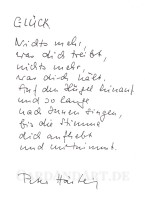 GLÜCK
Nichts mehr,
was dich treibt,
nichts mehr,
was dich hält.
Auf den Hügel hinauf
und so lange
nach innen singen,
bis die Stimme
dich aufhebt
und mitnimmt.
Peter Härtling